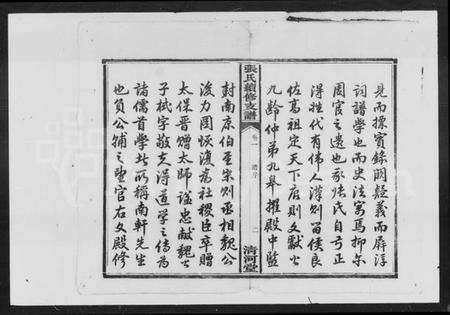 見而摭實錄闕疑義而屏浮
詞譜學也而史法寓焉抑亦
周官之遺也哉張氏自弓正
得姓代有偉人漢則留侯良
佐高祖定天下唐則文獻公
九齡仲弟九皋擢殿中監
張氏續修支譜
卷一
譜序
二
清河堂
封南康伯至宋則丞相魏公
浚力圖恢復為社稷臣卒贈
太保晉贈太師謚忠獻魏公
子栻字敬夫得道學之傳為
諸儒首學者所稱南軒先生
也負公輔之望官右文殿修